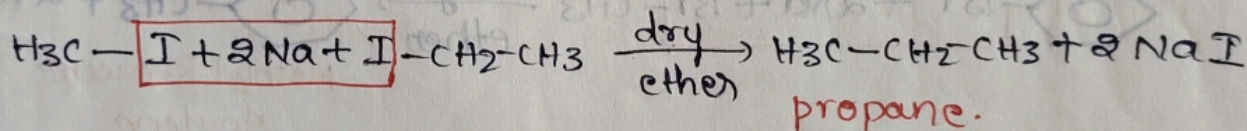 H3C-I+2Na+I-CH2-CH3 dry ether → H3C-CH2-CH3+2NaI
propane.